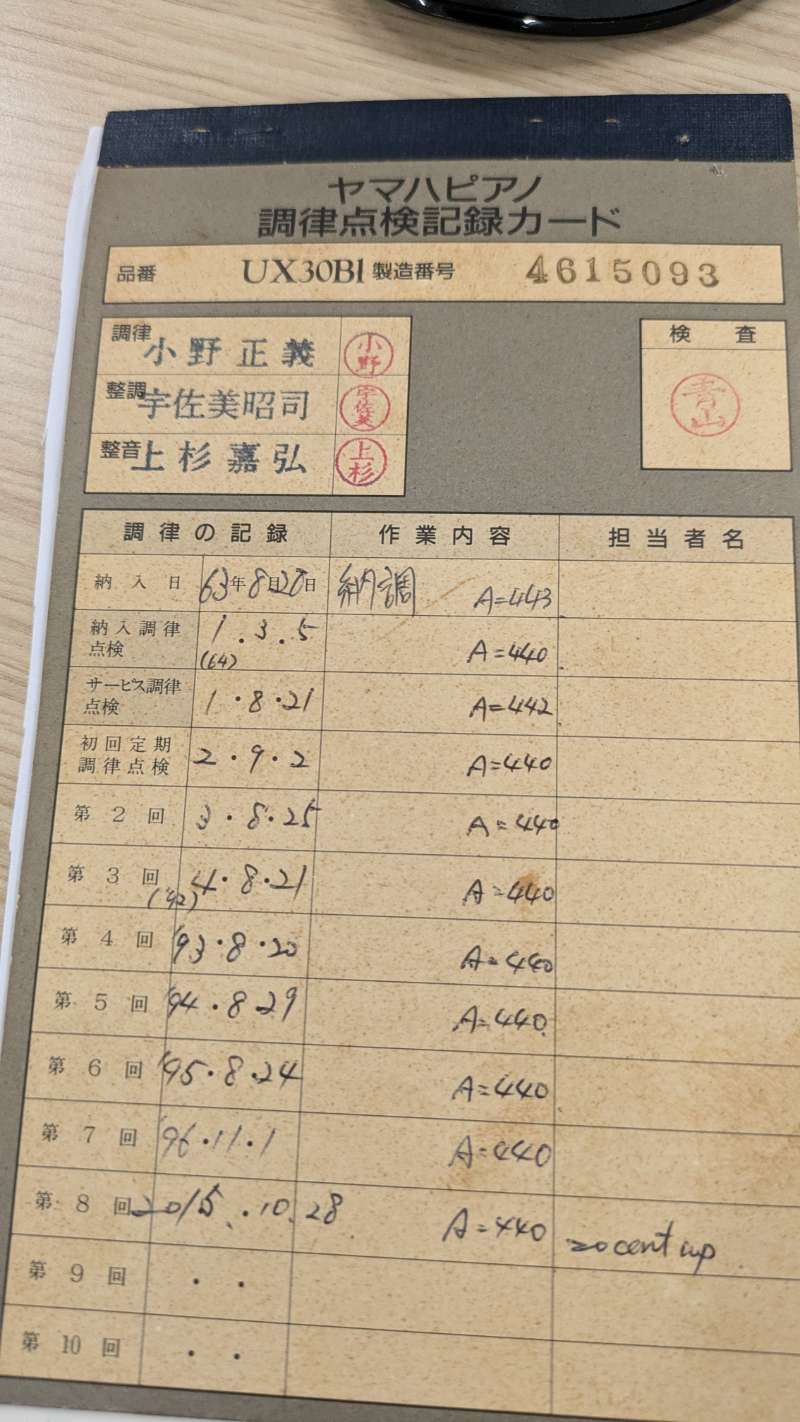 ヤマハピアノ
調律点検記録カード
品番 UX30Bl 製造番号 4615093
調律 小野正義 小野
整調 宇佐美昭司 宇佐美
整音 上杉嘉弘 上杉
検査
青山
調律の記録 作業内容 担当者名
納入日 63年8月28日 納調 A=443
納入調律点検 1.3.5 (64) A=440
サービス調律点検 1・8・21 A=442
初回定期調律点検 2・9・2 A=440
第2回 3・8・25 A=440
第3回 4・8・21 ('92) A=440
第4回 '93・8・20 A=440
第5回 '94・8・29 A=440
第6回 '95・8・24 A=440
第7回 '96・11・1 A=440
第8回 2015.10.28 A=440 20cent up
第9回 ・ ・
第10回 ・ ・